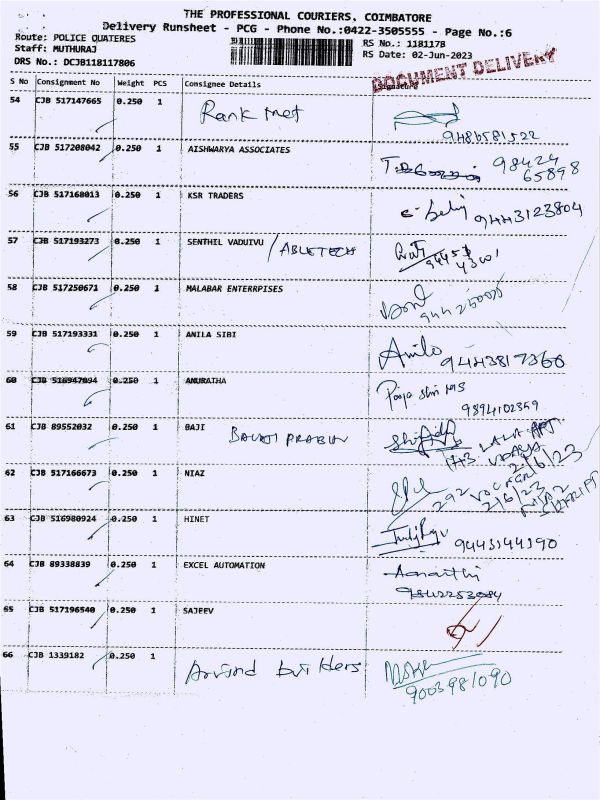 THE PROFESSIONAL COURIERS, COIMBATORE
Delivery Runsheet - PCG - Phone No.:0422-3505555 - Page No.:6
Route: POLICE QUATERES
RS No.: 1181178
Staff: MUTHURAJ
RS Date: 02-Jun-2023
DRS No.: DCJB118117806
DOCUMENT DELIVERY
S No Consignment No Weight PCS Consignee Details Signature
54 CJB 517147665 0.250 1 Rank met
9486581522
55 CJB 517208042 0.250 1 AISHWARYA ASSOCIATES 98424
65898
56 CJB 517168013 0.250 1 KSR TRADERS 9443123804
57 CJB 517193273 0.250 1 SENTHIL VADUIVU / ABLETECH
58 CJB 517250671 0.250 1 MALABAR ENTERRPISES
59 CJB 517193331 0.250 1 ANILA SIBI
9443817366
60 CJB 516947094 0.250 1 ANURATHA
9894102359
61 CJB 89552032 0.250 1 BAJI BALAJI PRABHU
2/6/23
62 CJB 517166673 0.250 1 NIAZ
292
2/6/23
63 CJB 516980924 0.250 1 HINET
9443144390
64 CJB 89338839 0.250 1 EXCEL AUTOMATION
9842253084
65 CJB 517196540 0.250 1 SAJEEV
66 CJB 1339182 0.250 1 Arvind builders
9003981090